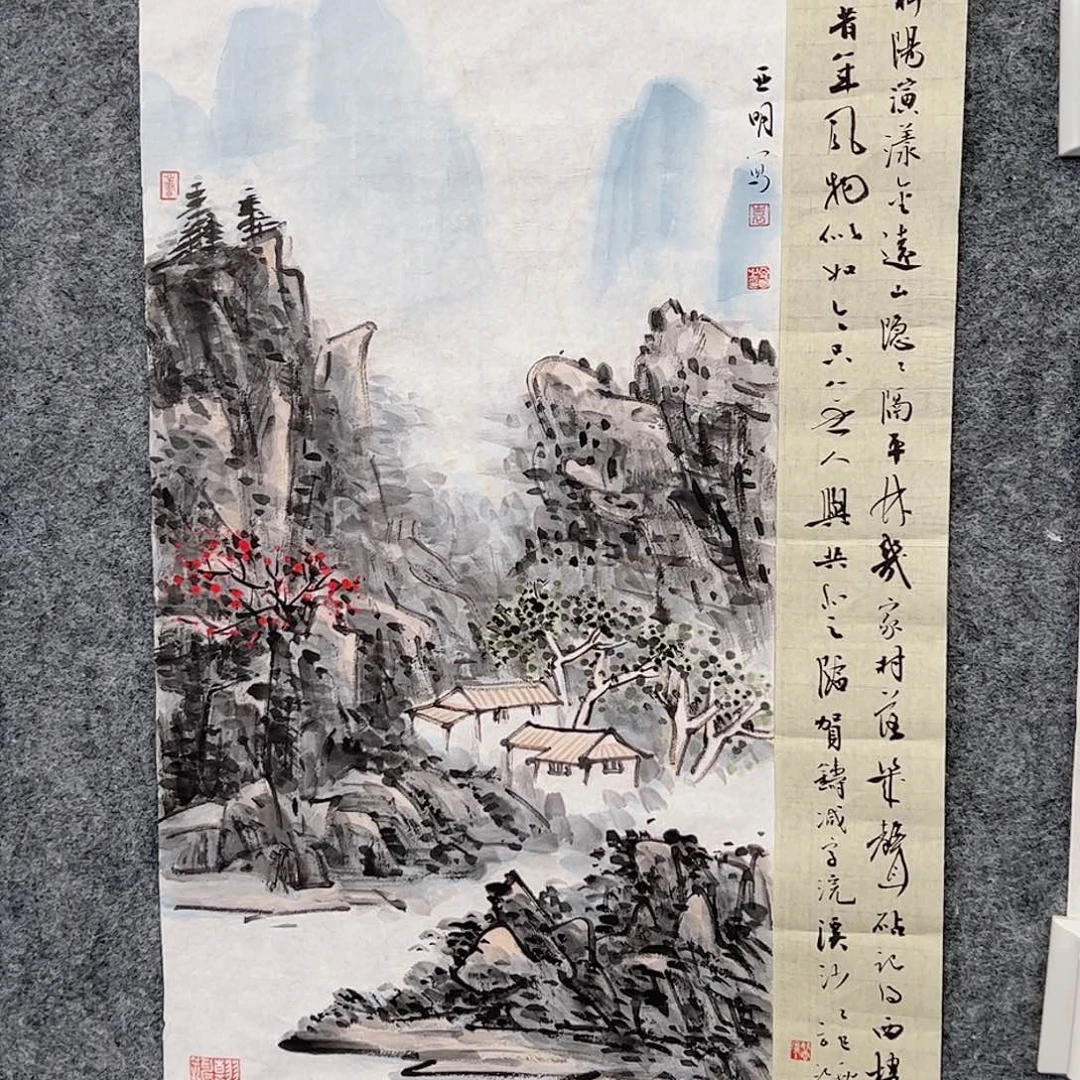 斜陽演漾金遠山隐〻隔平林幾家村落幾聲砧記得西樓
昔年風物似如今只無人與共登臨賀鑄减字浣溪沙
亚明写